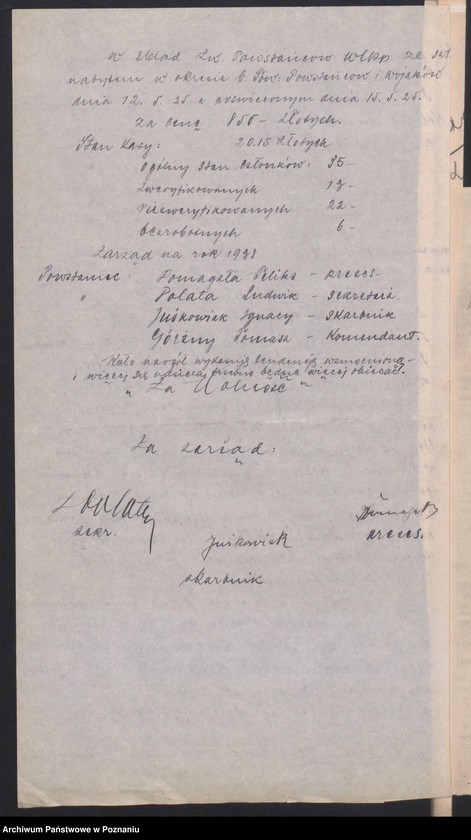 w skład Zw. Powstańców Wlkp. ze szt.
nabytym w okresie b. Tow. Powstańców i Wojaków
dnia 12. 5. 25. a poświęconym dnia 15. 5. 25.
za cenę 850 - Złotych.
Stan kasy: 20.15 Złotych
Ogólny stan członków: 35 -
Zweryfikowanych 13 -
Niezweryfikowanych 22 -
bezrobotnych 6 -
Zarząd na rok 1938
Powstaniec: Pomagała Feliks - prezes -
" Polata Ludwik - sekretarz.
Juśkowiak Ignacy - skarbnik
Górzny Tomasz - Komendant.
Koło naogół wykazuje tendencję wzmocnioną -
i więcej się więcej obiecać.
" Za Wolność "
Za zarząd:
sekr.
Juśkowiak
prezes.
skarbnik
Archiwum Państwowe w Poznaniu